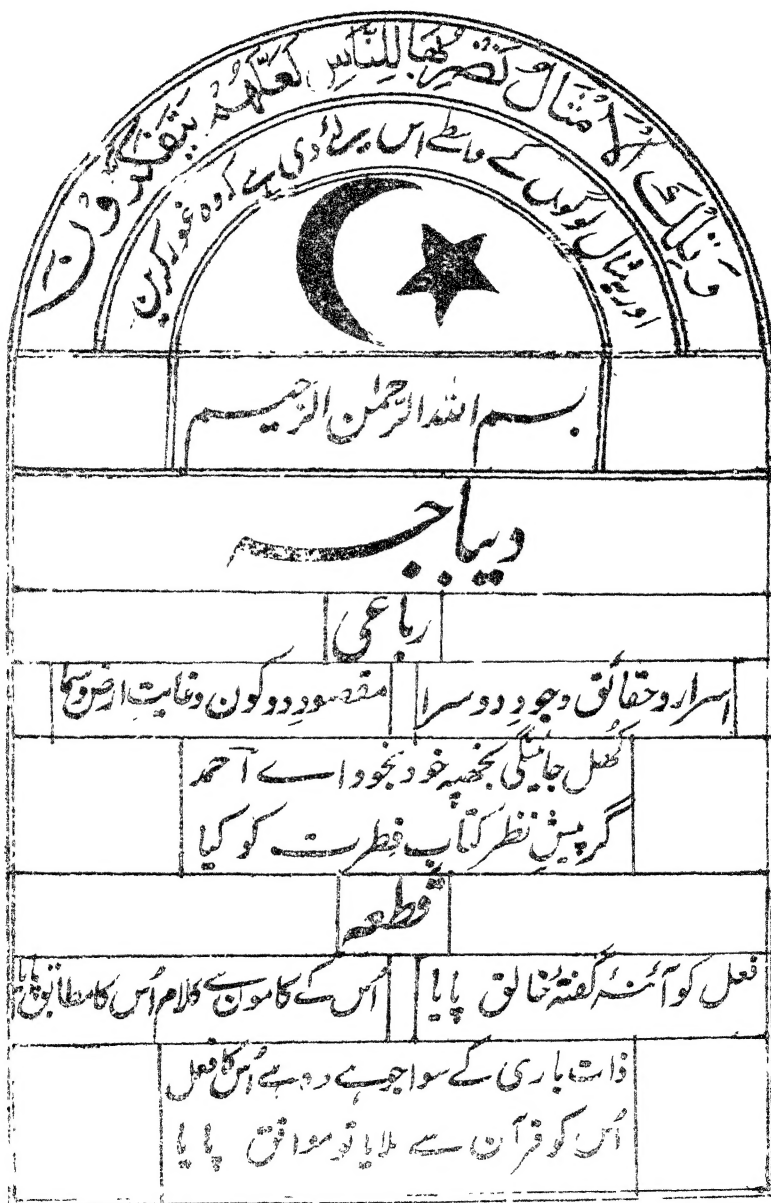 وَتِلْكَ الْاَمْثَالُ نَضْرِبُهَا لِلنَّاسِ لَعَلَّهُمْ يَتَفَكَّرُوْنَ
اور یہ مثال لوگوں کے واسطے اس لئے دی ہے کہ وہ غور کریں
بسم اللہ الرحمٰن الرحیم
دیباجہ
رباعی
اسرار و حقائق وجودِ دوسرا
مقصودِ دو کون و غایتِ ارض و سما
کُھل جائینگی تجھپہ خود بخود اے احمد
گر پیشِ نظر کتابِ فطرت کو کیا
قطعہ
فعل کو آئنۂ گفتۂ خالق پایا
اُس کے کامون سے کلام اُس کا مطابق پایا
ذات باری کے سوا جو ہے وہ ہے اُس کا فعل
اُس کو قرآن سے ملایا تو موافق پایا